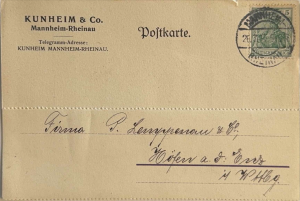 KUNHEIM & Co.
Mannheim-Rheinau
Telegramm-Adresse:
KUNHEIM MANNHEIM-RHEINAU.
Postkarte.
5
Firma P. Lemppenau & Co.
Höfen a. d. Enz
i/ Wttbg